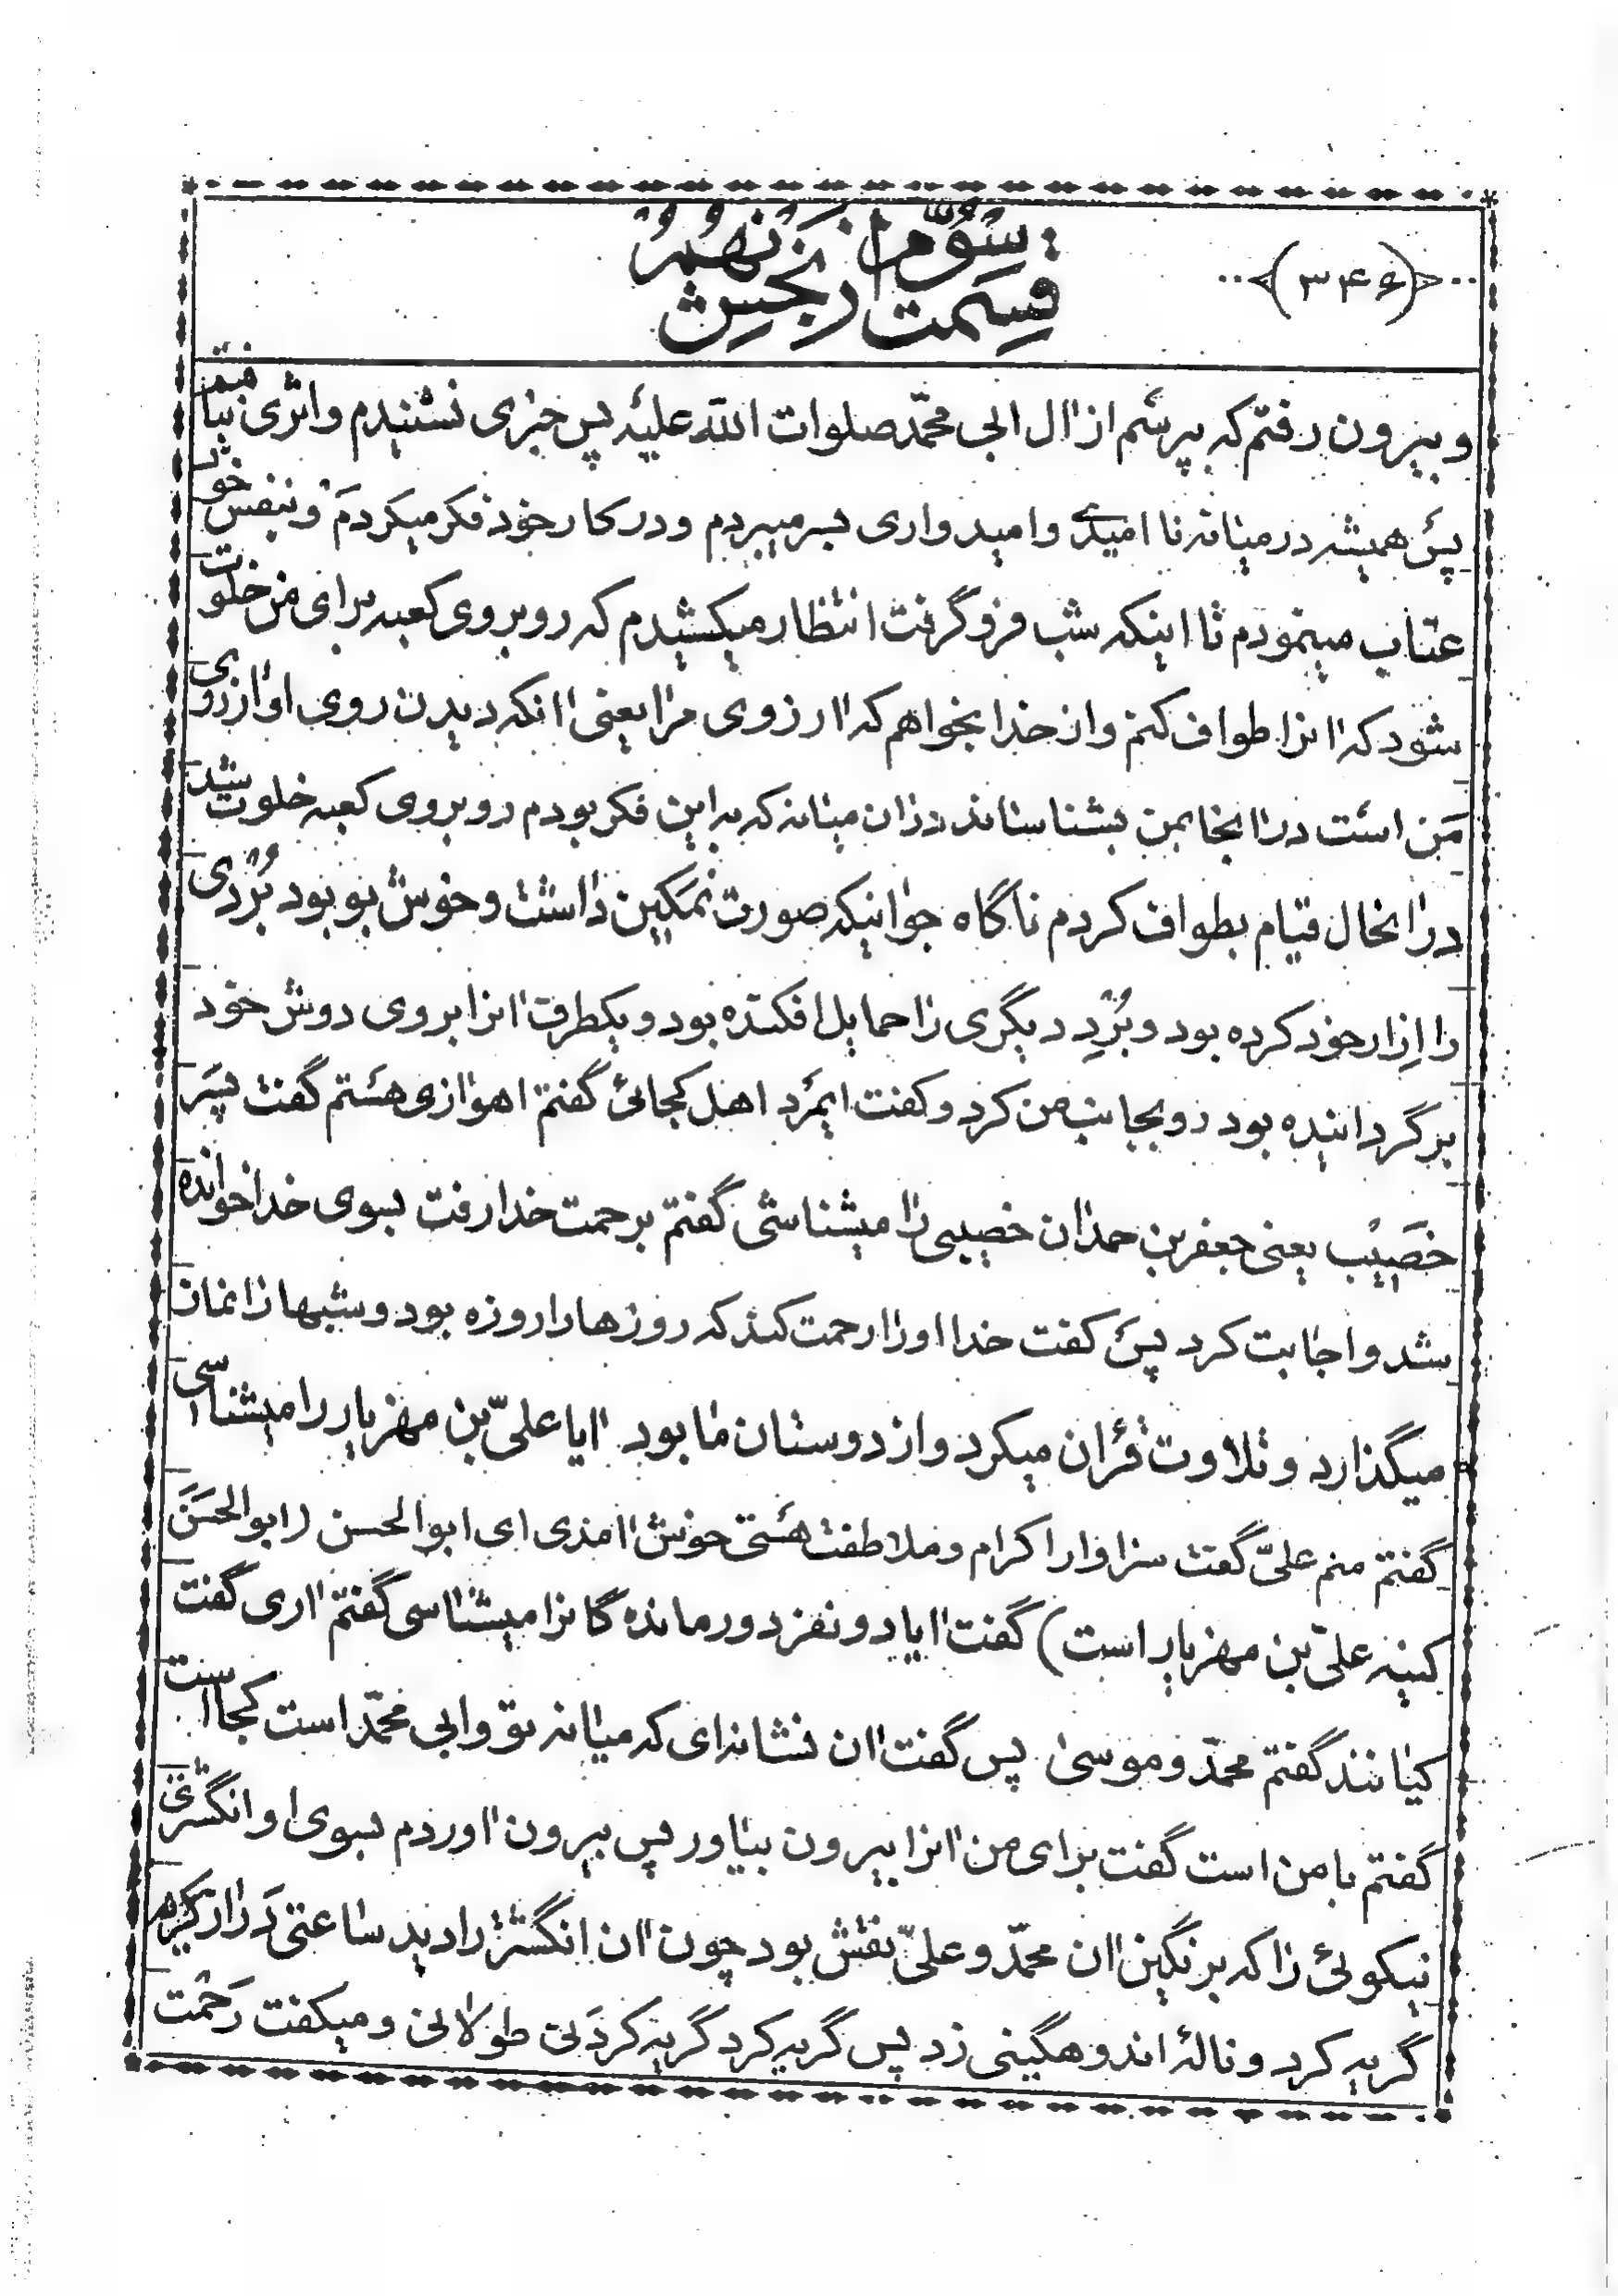 (۳۴۶)
قسمت سوّم از بخش نهم
و بیرون رفتم که بپرسم از اٰل ابی محمّد صلوات اللّه علیه پس خبری نشنیدم و اثری نیافتم
پس همیشه در میانه نا امیدی و امیدواری بسر میبردم و در کار خود فکر میکردم و بنفس خود
عتاب مینمودم تا اینکه شب فرو گرفت انتظار میکشیدم که روبروی کعبه برای من خلوت
شود که اٰنرا طواف کنم و از خدا بخواهم که اٰرزوی مرا یعنی اٰنکه دیدن روی او اٰرزوی
من است در اٰنجا بمن بشناساند در اٰن میانه که به این فکر بودم روبروی کعبه خلوت شد
در اٰنحال قیام بطواف کردم ناگاه جوانیکه صورت نمکین داشت و خوش بو بود بُردی
را اِزار خود کرده بود و بُردِ دیگری را حمایل افکنده بود و یکطرف اٰنرا بروی دوش خود
برگردانیده بود رو بجانب من کرد و گفت ایمرد اهل کجائی گفتم اهوازی هستم گفت پسر
خَصیب یعنی جعفر بن حمدان خصیبی را میشناسی گفتم برحمت خدا رفت بسوی خدا خوانده
شد و اجابت کرد پس گفت خدا او را رحمت کند که روزها را روزه بود و شبها را نماز
میگذارد و تلاوت قرٰان میکرد و از دوستان ما بود اٰیا علیّ بن مهزیار را میشناسی
گفتم منم علیّ گفت سزاوار اکرام و ملاطفت هستی خوش اٰمدی ای ابوالحسن (ابوالحسن
کنیه علیّ بن مهزیار است) گفت اٰیا دو نفر دورمانده گانرا میشناسی گفتم اٰری گفت
کیانند گفتم محمّد و موسیٰ پس گفت اٰن نشانه‌ای که میانه تو و ابی محمّد است کجا است
گفتم با من است گفت برای من اٰنرا بیرون بیاور پس بیرون اٰوردم بسوی او انگشتری
نیکوئی را که بر نگین اٰن محمّد و علیّ نقش بود چون اٰن انگشتر را دید ساعتی دراز گریه
گریه کرد و نالهٔ اندوهگینی زد پس گریه کرد گریه کردنی طولانی و میگفت رحمت